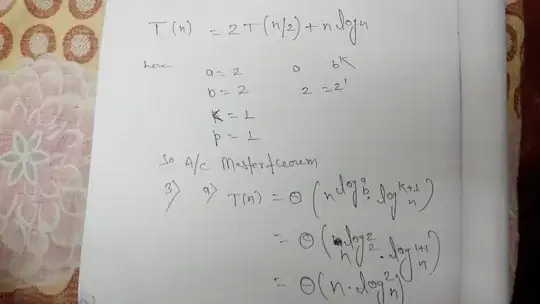 T(n) = 2T(n/2) + n log n
here
a = 2 a b^k
b = 2 2 = 2^1
k = 1
p = 1
So A/C Master
3) a) T(n) = Θ(n^log_b^a . log^k+1 n)
= Θ(n^log_2^2 . log^1+1 n)
= Θ(n . log^2 n)